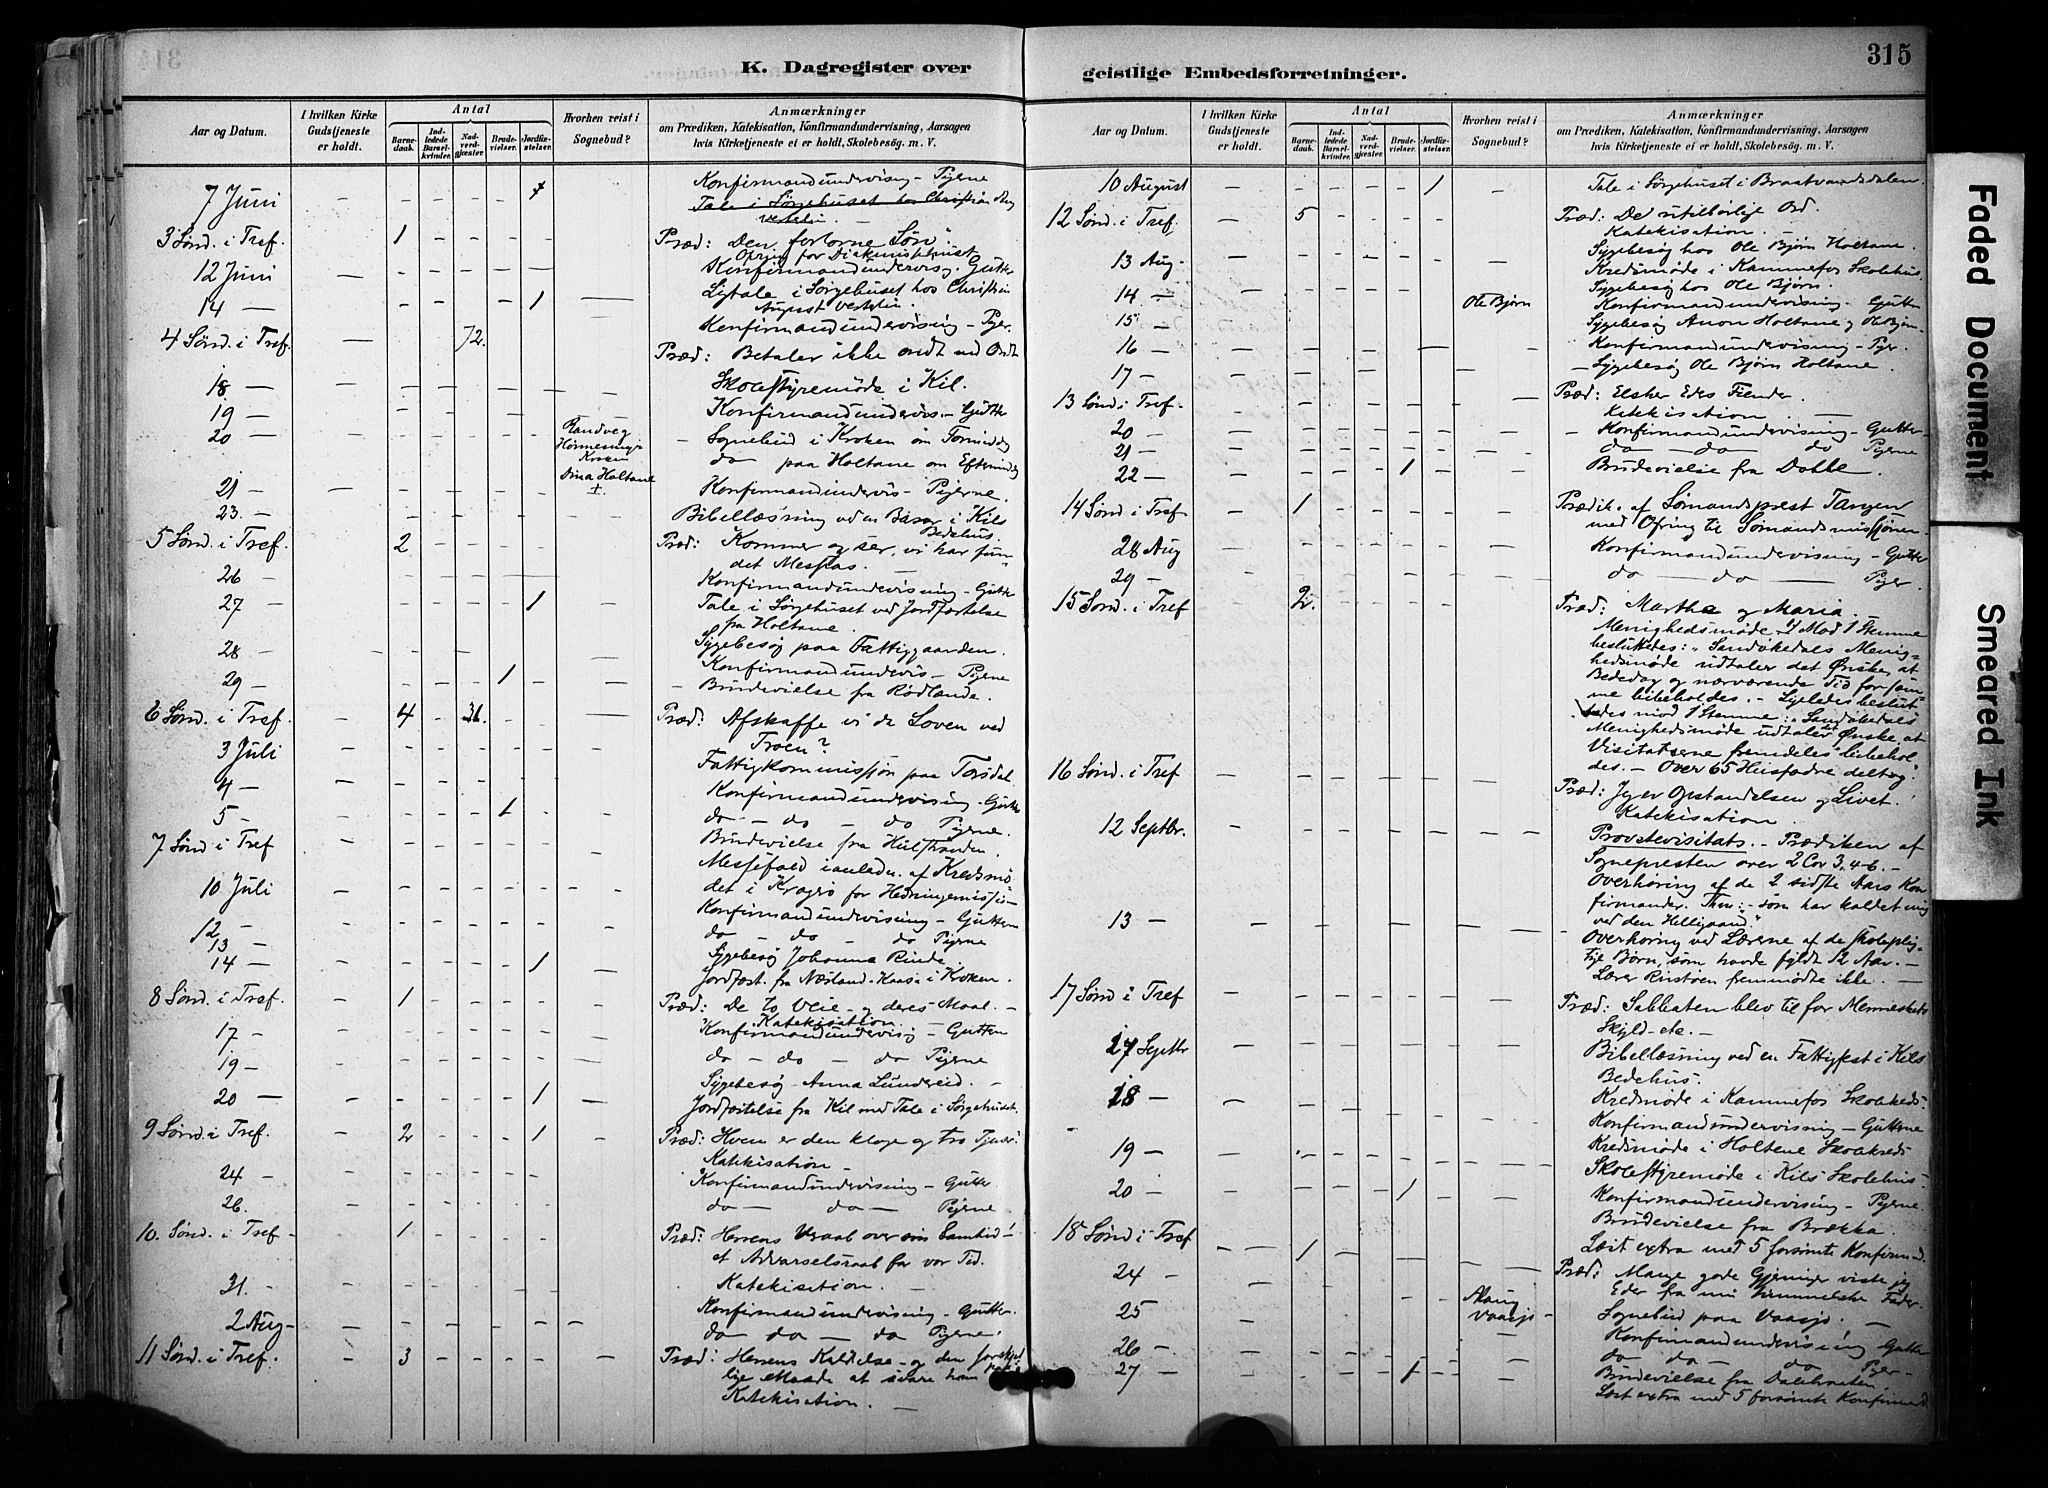 K. Dagregister over
Aar og Datum.
I hvilken Kirke Gudstjeneste er holdt.
Antal
Barnedaab.
Indledede Barselkvinder.
Nadverdgjester.
Brudevielser.
Jordfæstelser.
Hvorhen reist i Sognebud?
Anmærkninger
om Prædiken, Katekisation, Konfirmandundervisning, Aarsagen
hvis Kirketjeneste ei er holdt, Skolebesög. m. V.
7 Juni — Konfirmandundervisng - Pigerne
Tale i Sørgehuset hos Christian Aug
3 Sønd. i Tref. 1 Præd: Den fortorne Søn".
12 Juni Konfirmandundervisg. Gutter
14 — 1 Ligtale i Sørgehuset hos Christian
August
Konfirmandundervisning - Piger.
4 Sønd. i Tref. 72. Præd: Betaler ikke ondt med Ondt
18 — Skolestyremöde i Kil.
19 — Konfirmandundervis. - Gutter
20 — Sognebud i Kroken om Formiddag
Kroken
do paa Holtane om Eftermiddag
Dina Holtane +
21 — Konfirmandundervis - Pigerne.
23. — Bibellæsning ved en Basar i Kils
Bedehus.
5 Sønd. i Tref. 2 Præd: Kommer og ser, vi har fun-
det Messias.
26 — Konfirmandundervisning - Gutter
27 — 1 Tale i Sørgehuset ved Jordfæstelse
fra Holtane.
28 — Sygebesög paa Fattiggaarden.
Konfirmandundervis - Pigerne
29 — 1 Brudevielse fra Rødlande.
6 Sønd. i Tref. 4 31. Præd: Afskaffe vi da Loven ved
Troen?
3 Juli Fattigkommission paa Torsdal.
4 — Konfirmandundervisning - Gutter
5 — 1 do — do — do Pigerne.
Brudevielse fra
7 Sønd i Tref Messefald i anledn. af Kredsmö-
det i Kragerø for Hedningemission
10 Juli Konfirmandundervisning - Guttene
12 — do — do — do Pigerne
13 — Sygebesög Johanna Rinde.
14 — 1 Jordfæst. fra Næsland-Kaasa i Kroken.
8 Sønd. i Tref. 1 Præd: De to Veie - og deres Maal. —
Katekisation
17 — Konfirmandundervisg - Guttene
19 — do — do — do Pigerne
Sygebesög - Anna Lundereid. —
20 — 1 Jordfæstelse fra Kil med Tale i Sørgehuset.
9 Sønd. i Tref. 2 1 Præd: Hvem er den kloge og tro Tjener?
Katekisation —
24 — Konfirmandundervisning - Gutter
26. — do — do — Pigerne
10. Sønd. i Tref — 1 Præd: Herrens Veraab over sin Samtid —
et Advarselsraab for vor Tid.
Katekisation. —
31. Konfirmandundervisning - Gutter.
2 Aug — do do — do Pigerne.
11 Sønd. i Tref. 3 Præd: Herrens Kaldelse - og den forskjel
lige Maade at svare ham paa
Katekisation. —
geistlige Embedsforretninger.
315
Aar og Datum.
I hvilken Kirke Gudstjeneste er holdt.
Antal
Barnedaab.
Indledede Barselkvinder.
Nadverdgjester.
Brudevielser.
Jordfæstelser.
Hvorhen reist i Sognebud?
Anmærkninger
om Prædiken, Katekisation, Konfirmandundervisning, Aarsagen
hvis Kirketjeneste ei er holdt, Skolebesög. m. V.
10 August 1 Tale i Sørgehuset i Brastvandsdalen.
12 Sønd. i Tref. 5 Præd: De utilbørlige Ord.
Katekisation. —
Sygebesög hos Ole Bjørn Holtane.
13 Aug — Kredsmöde i Kammefos Skolehus.
Sygebesög hos Ole Bjørn.
14 — Ole Bjørn Konfirmandundervisning - Gutter
15 — Sygebesög Anon Holtane og Ole Bjørn
16 — Konfirmandundervisning - Piger.
17 — Sygebesög Ole Bjørn Holtane.
13 Sønd i Tref. Præd: Elsker Eders Fiender.
Katekisation. —
20 — Konfirmandundervisning - Gutter
21 — do — do — do Pigerne
22 — 1 Brudevielse fra Dobbe.
14 Sønd i Tref. 1 Prædik. af Sømandsprest Tangen
med Ofring til Sømandsmissionen
28 Aug Konfirmandundervisning - Gutter
29 — do — do — Piger.
15 Sønd. i Tref 2. Præd: Martha og Maria.
Menighedsmöde. Mod 1 Stemme
besluttedes: "Sandökedals Menig-
hedsmöde udtaler det Ønske, at
Bededag og nærværende Tid for sam-
me bibeholdes. - Ligeledes beslut-
tedes mod 1 Stemme: "Sandökedals
Menighedsmöde udtaler det Ønske, at
Visitatserne fremdeles bibehol-
des. - Over 65 Husfædre deltog.
16 Sønd. i Tref Præd: Jeg er Opstandelsen og Livet.
Katekisation.
12 Septbr. Provstevisitats. - Prædiken af
Sognepresten over 2 Cor 3, 4-6. -
Overhøring af de 2 sidste Aars Kon
firmander. Thm: "- som har kaldet mig
ved den Helligaand".
13 — Overhøring ved Lærerne af de skoleplig-
tige Børn, som havde fyldt 12 Aar. -
Lærer Rinstøen fremmødte ikke. —
17 Sønd i Tref Præd: Sabbaten blev til for Menneskets
Skyld - etc. -
17 Septbr Bibellæsning ved en Fattigfest i Kils
Bedehus.
18 — Kredsmöde i Kammefos Skolekreds.
Konfirmandundervisning - Guttene
19 — Kredsmöde i Holtene Skolekreds
Skolestyremöde i Kils Skolehus.
20 — 1 Konfirmandundervisning - Pigerne.
Brudevielse fra Brækka.
Læst extra med 5 forsømte Konfirmand
18 Sønd i Tref 1 Præd: Mange gode Gjerninger viste jeg
Eder fra min himmelske Fader.
24 — Sognebud paa Vaasjø. —
25 Vaasjø - Konfirmandundervisning - Gutter
26 — do do — do Piger -
27 — 1 Brudevielse fra Dalsbraaten.
Læst extra med 5 forsømte Konfirmand
Faded Document
Smeared Ink